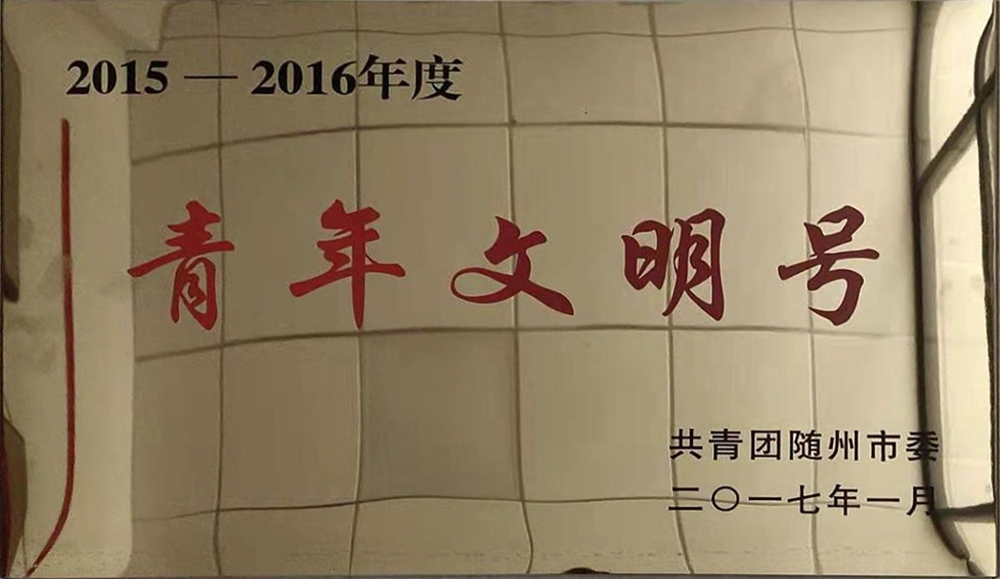 2015 — 2016年度
青年文明号
共青团随州市委
二〇一七年一月